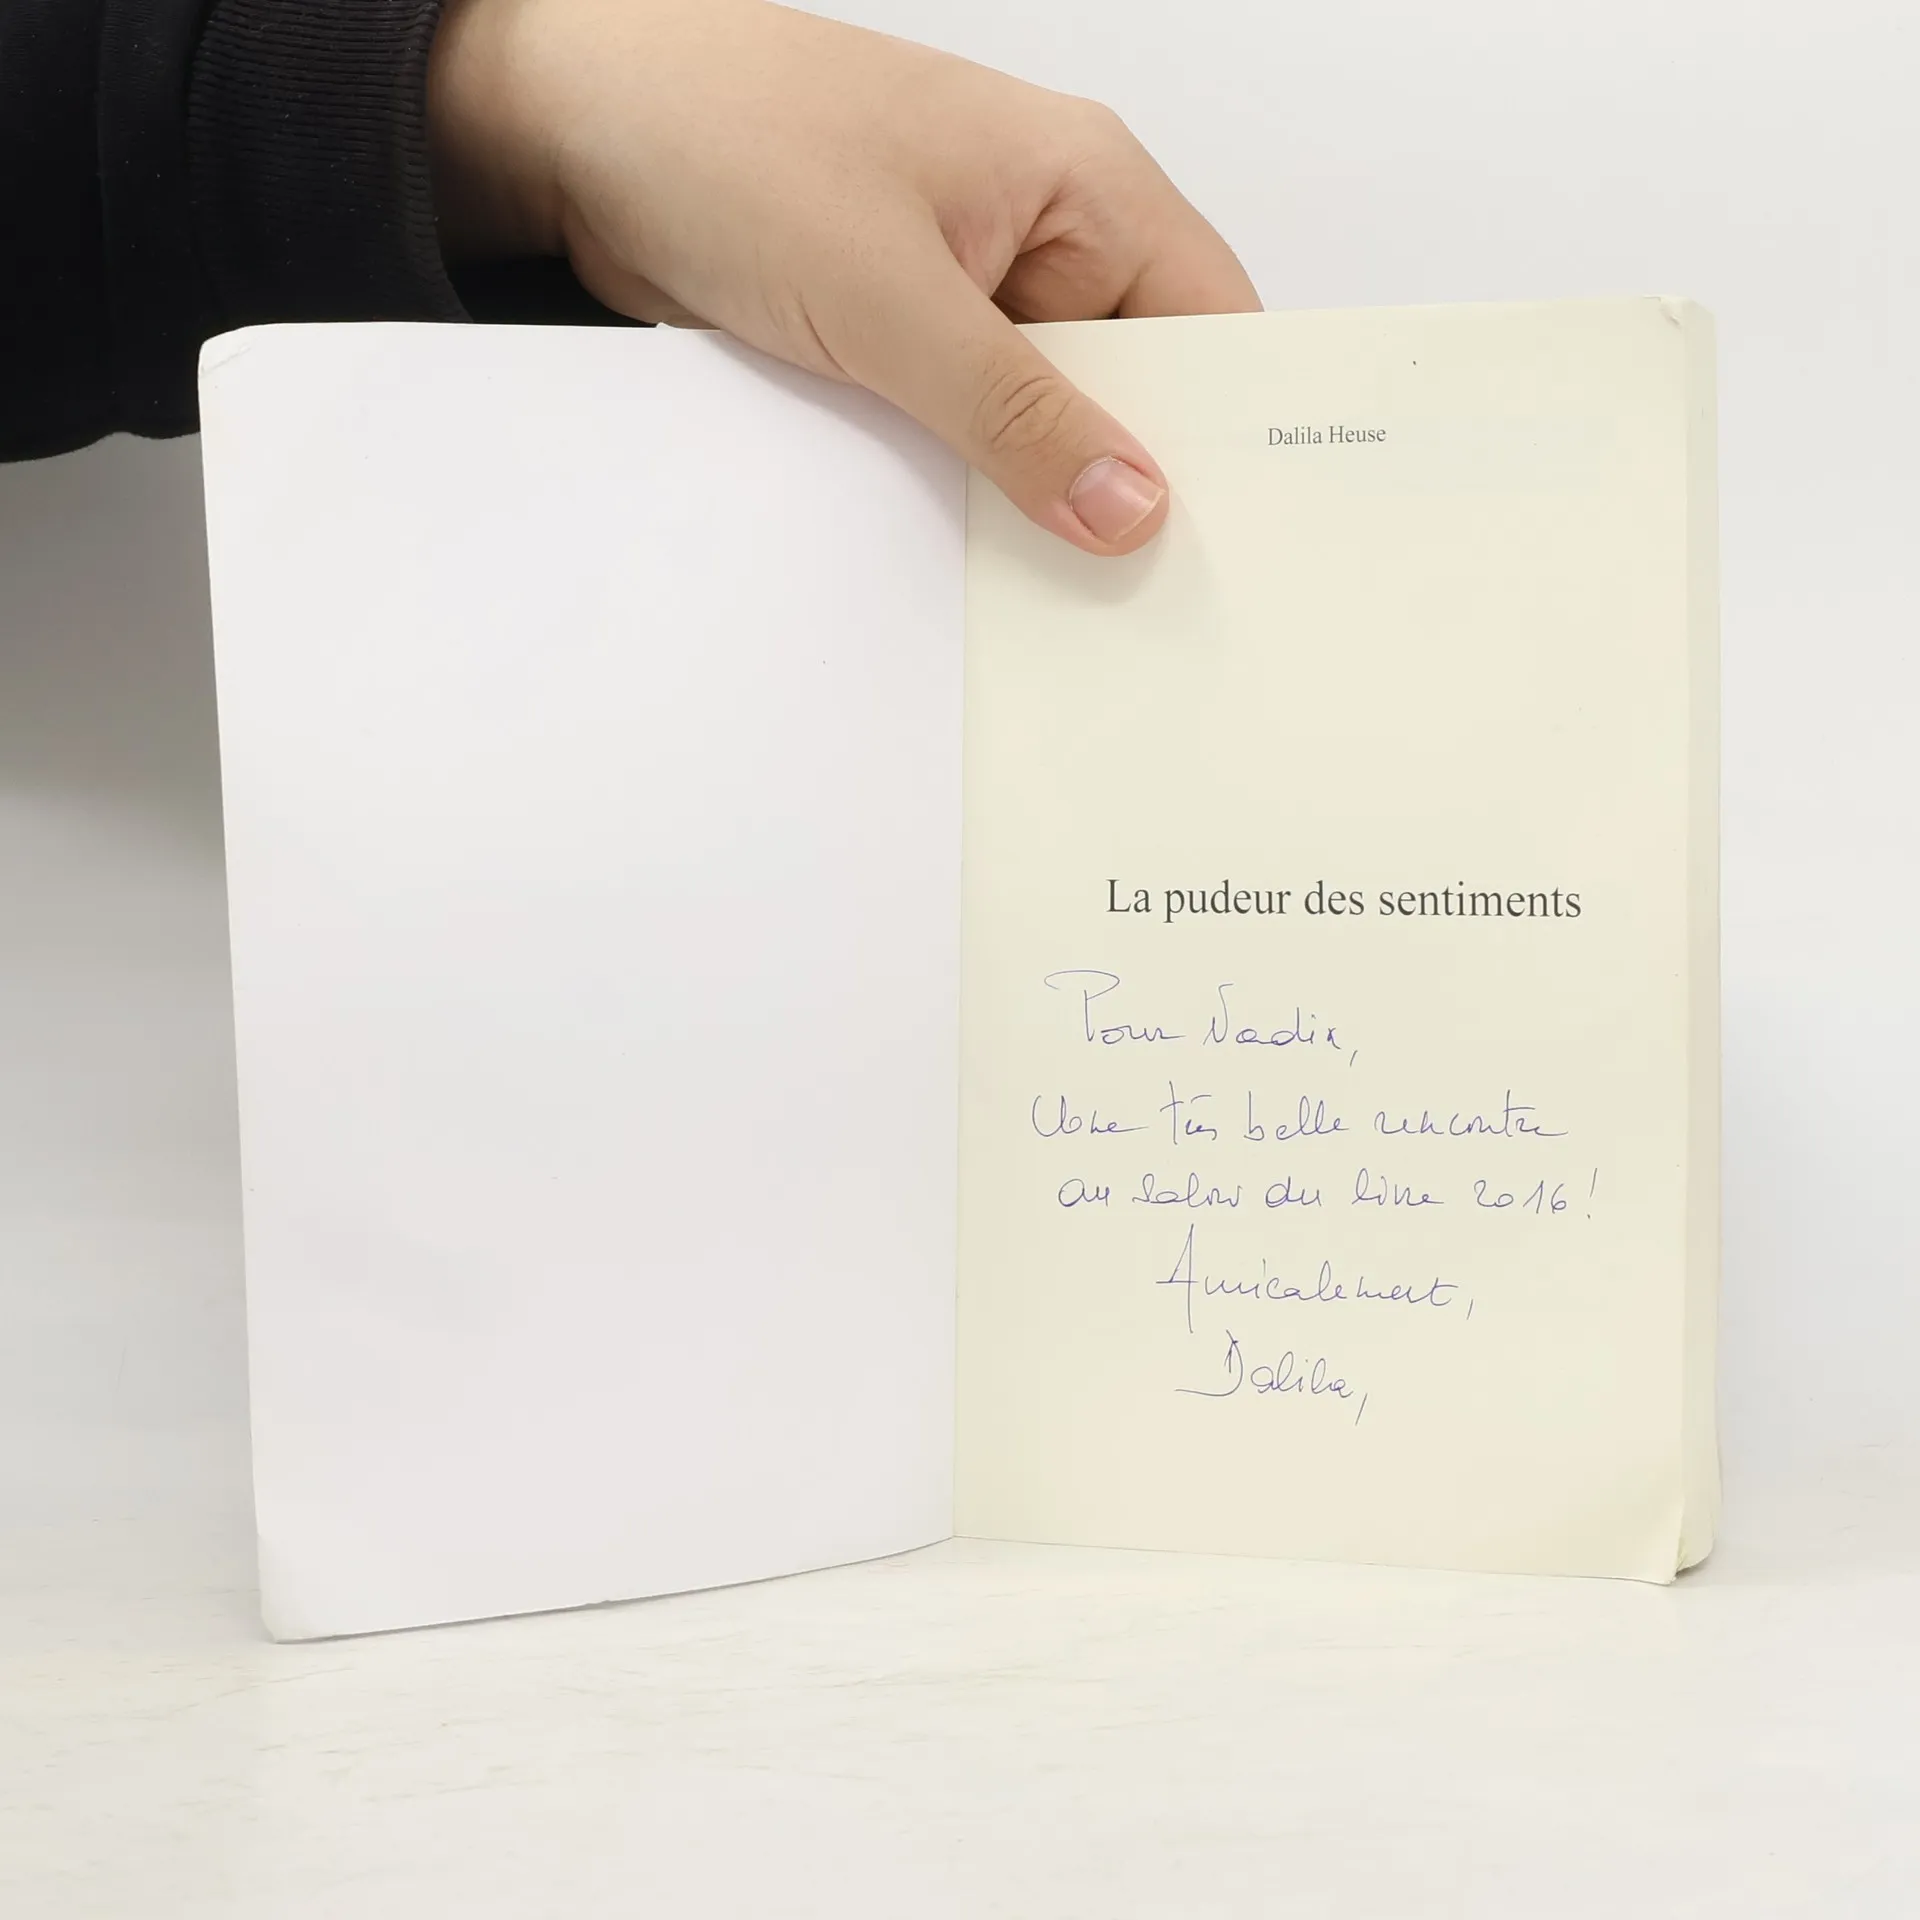 Dalila Heuse
La pudeur des sentiments
Pour Nadia,
Une très belle rencontre
au salon du livre 2016 !
Amicalement,
Dalila,